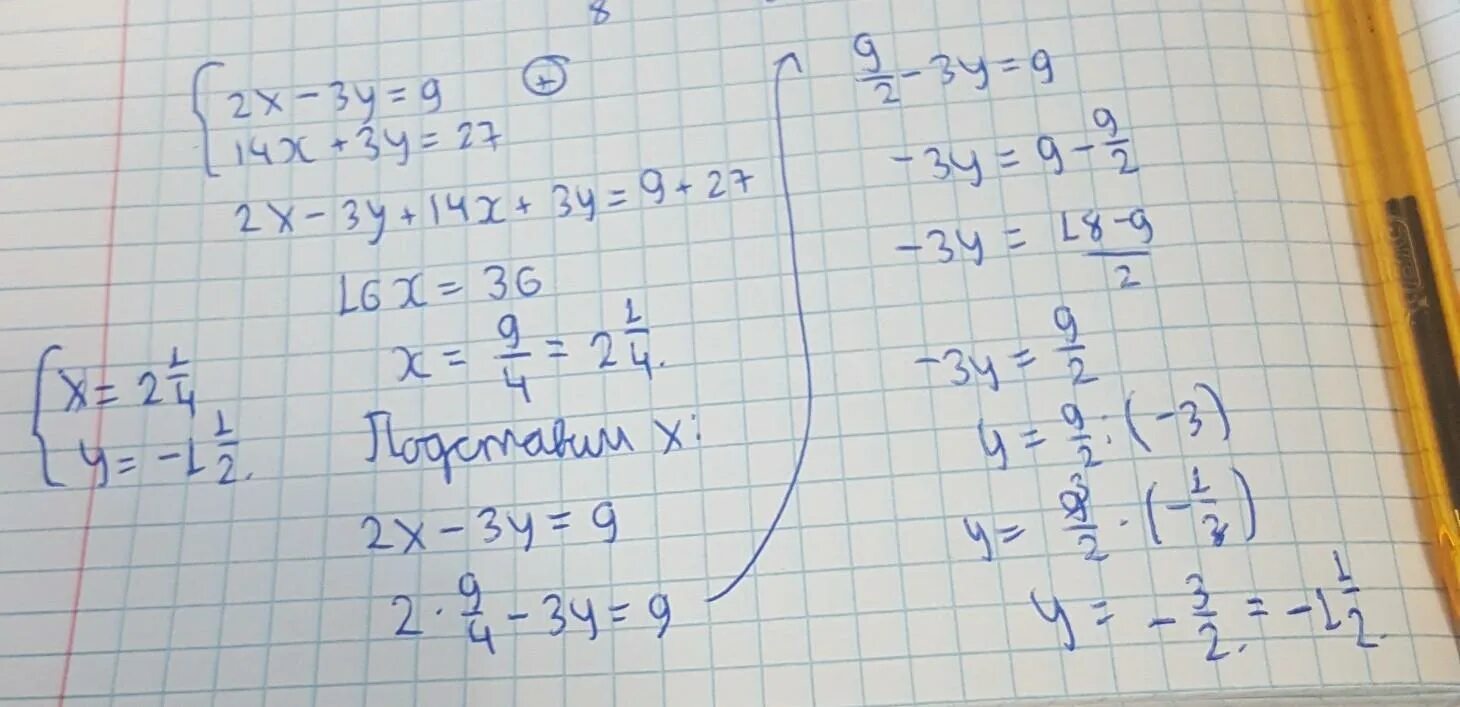 8
{ 2x - 3y = 9 (+)
14x + 3y = 27
2x - 3y + 14x + 3y = 9 + 27
16x = 36
x = 9/4 = 2 1/4.
{ x = 2 1/4
y = -1 1/2.
Подставим x:
2x - 3y = 9
2 · 9/4 - 3y = 9
9/2 - 3y = 9
-3y = 9 - 9/2
-3y = (18-9)/2
-3y = 9/2
y = 9/2 : (-3)
y = 9 3/2 · (-1/3)
y = -3/2. = -1 1/2.